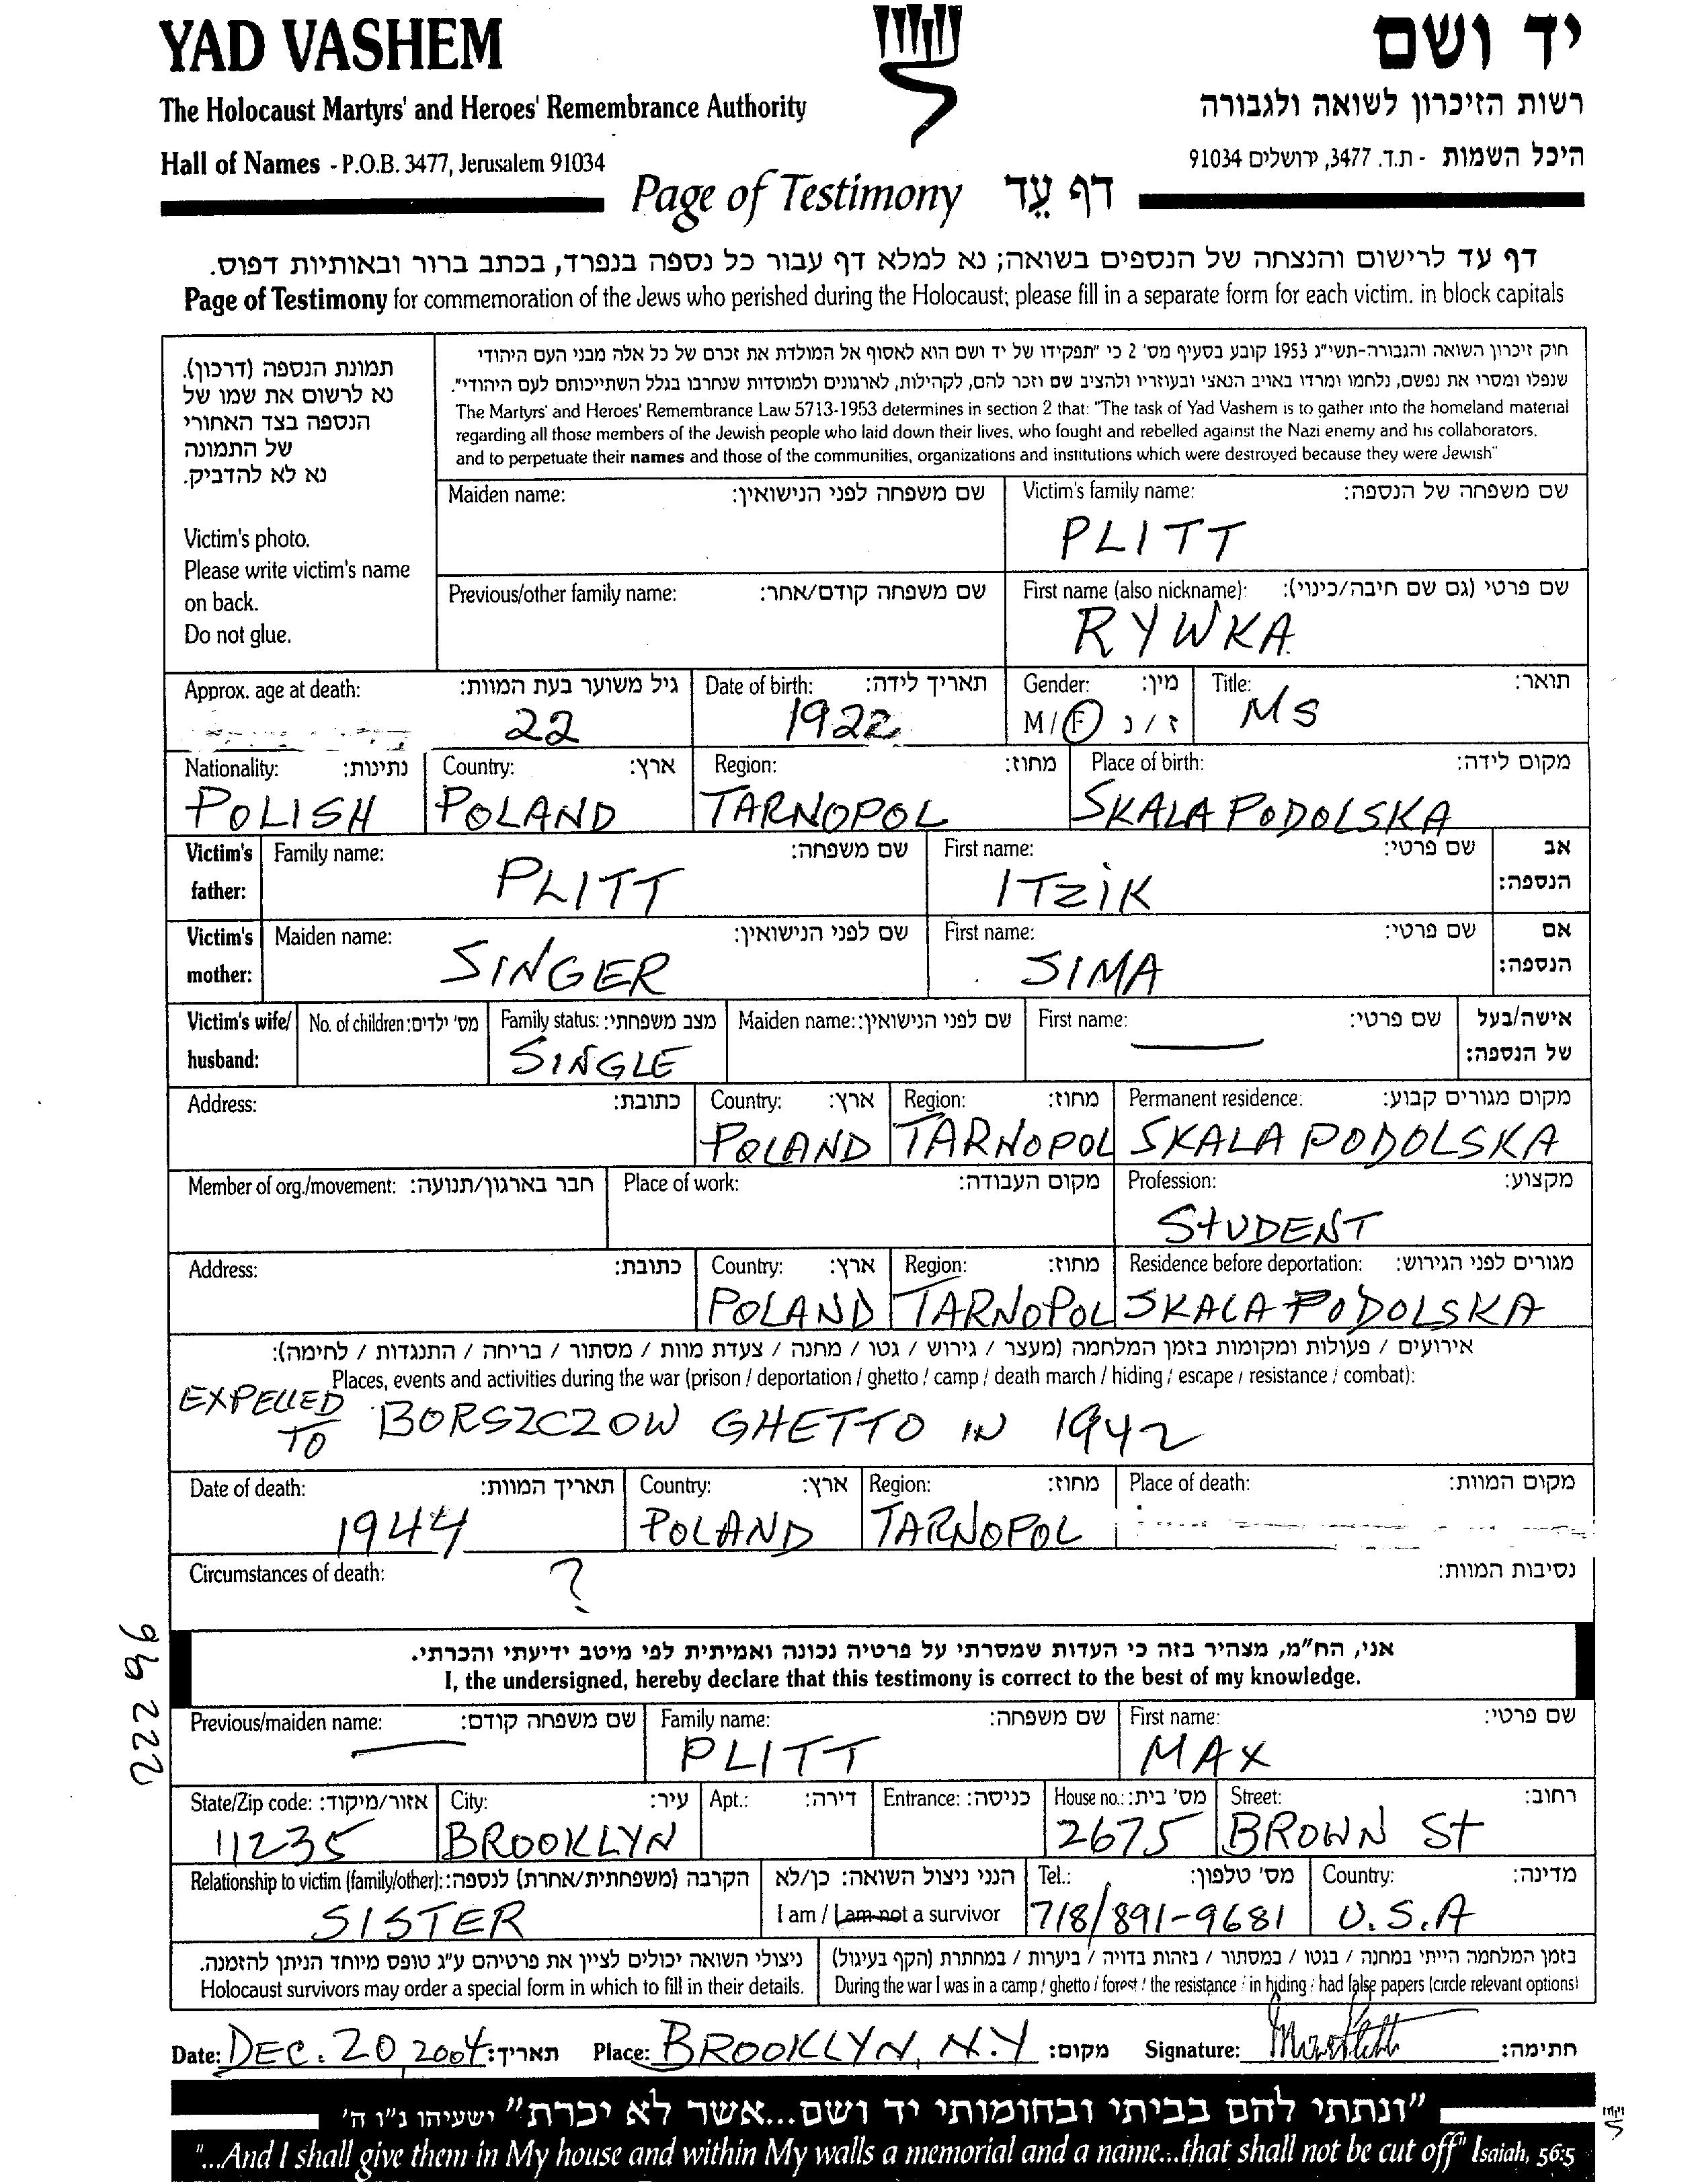 YAD VASHEM
יד ושם
The Holocaust Martyrs' and Heroes' Remembrance Authority
רשות הזיכרון לשואה ולגבורה
Hall of Names - P.O.B. 3477, Jerusalem 91034
היכל השמות - ת.ד. 3477, ירושלים 91034
Page of Testimony דף עֵד
דף עד לרישום והנצחה של הנספים בשואה; נא למלא דף עבור כל נספה בנפרד, בכתב ברור ובאותיות דפוס.
Page of Testimony for commemoration of the Jews who perished during the Holocaust; please fill in a separate form for each victim. in block capitals
תמונת הנספה (דרכון).
נא לרשום את שמו של
הנספה בצד האחורי
של התמונה
נא לא להדביק.
Victim's photo.
Please write victim's name
on back.
Do not glue.
חוק זיכרון השואה והגבורה-תשי"ג 1953 קובע בסעיף מס' 2 כי "תפקידו של יד ושם הוא לאסוף אל המולדת את זכרם של כל אלה מבני העם היהודי
שנפלו ומסרו את נפשם, נלחמו ומרדו באויב הנאצי ובעוזריו ולהציב שם וזכר להם, לקהילות, לארגונים ולמוסדות שנחרבו בגלל השתייכותם לעם היהודי".
The Martyrs' and Heroes' Remembrance Law 5713-1953 determines in section 2 that: "The task of Yad Vashem is to gather into the homeland material
regarding all those members of the Jewish people who laid down their lives, who fought and rebelled against the Nazi enemy and his collaborators.
and to perpetuate their names and those of the communities, organizations and institutions which were destroyed because they were Jewish"
Maiden name: שם משפחה לפני הנישואין: Victim's family name: שם משפחה של הנספה:
PLITT
Previous/other family name: שם משפחה קודם/אחר: First name (also nickname): שם פרטי (גם שם חיבה/כינוי):
RYWKA
Approx. age at death: גיל משוער בעת המוות: Date of birth: תאריך לידה: Gender: מין: Title: תואר:
22 1922 M/F ז/נ MS
Nationality: נתינות: Country: ארץ: Region: מחוז: Place of birth: מקום לידה:
POLISH POLAND TARNOPOL SKALA PODOLSKA
Victim's father: Family name: שם משפחה: First name: שם פרטי: אב הנספה:
PLITT ITZIK
Victim's mother: Maiden name: שם לפני הנישואין: First name: שם פרטי: אם הנספה:
SINGER SIMA
Victim's wife/ husband: No. of children: מס' ילדים: Family status: מצב משפחתי: Maiden name: שם לפני הנישואין: First name: שם פרטי: אישה/בעל של הנספה:
SINGLE
Address: כתובת: Country: ארץ: Region: מחוז: Permanent residence: מקום מגורים קבוע:
POLAND TARNOPOL SKALA PODOLSKA
Member of org./movement: חבר בארגון/תנועה: Place of work: מקום העבודה: Profession: מקצוע:
STUDENT
Address: כתובת: Country: ארץ: Region: מחוז: Residence before deportation: מגורים לפני הגירוש:
POLAND TARNOPOL SKALA PODOLSKA
אירועים / פעולות ומקומות בזמן המלחמה (מעצר / גירוש / גטו / מחנה / צעדת מוות / מסתור / בריחה / התנגדות / לחימה):
Places, events and activities during the war (prison / deportation / ghetto / camp / death march / hiding / escape / resistance / combat):
EXPELLED TO BORSZCZOW GHETTO IN 1942
Date of death: תאריך המוות: Country: ארץ: Region: מחוז: Place of death: מקום המוות:
1944 POLAND TARNOPOL
Circumstances of death: נסיבות המוות:
?
22296
אני, הח"מ, מצהיר בזה כי העדות שמסרתי על פרטיה נכונה ואמיתית לפי מיטב ידיעתי והכרתי.
I, the undersigned, hereby declare that this testimony is correct to the best of my knowledge.
Previous/maiden name: שם משפחה קודם: Family name: שם משפחה: First name: שם פרטי:
PLITT MAX
State/Zip code: אזור/מיקוד: City: עיר: Apt.: דירה: Entrance: כניסה: House no.: מס' בית: Street: רחוב:
11235 BROOKLYN 2675 BROWN St
Relationship to victim (family/other): הקרבה (משפחתית/אחרת) לנספה: הנני ניצול השואה: כן/לא Tel.: מס' טלפון: Country: מדינה:
SISTER I am / I am not a survivor 718/891-9681 U.S.A
ניצולי השואה יכולים לציין את פרטיהם ע"ג טופס מיוחד הניתן להזמנה. בזמן המלחמה הייתי במחנה / בגטו / במסתור / בזהות בדויה / ביערות / במחתרת (הקף בעיגול)
Holocaust survivors may order a special form in which to fill in their details. During the war I was in a camp / ghetto / forest / the resistance / in hiding / had false papers (circle relevant options)
Date: DEC. 20 2004 תאריך: Place: BROOKLYN, N.Y מקום: Signature: חתימה:
"ונתתי להם בביתי ובחומותי יד ושם...אשר לא יכרת" ישעיהו נ"ו ה'
"...And I shall give them in My house and within My walls a memorial and a name...that shall not be cut off" Isaiah, 56:5